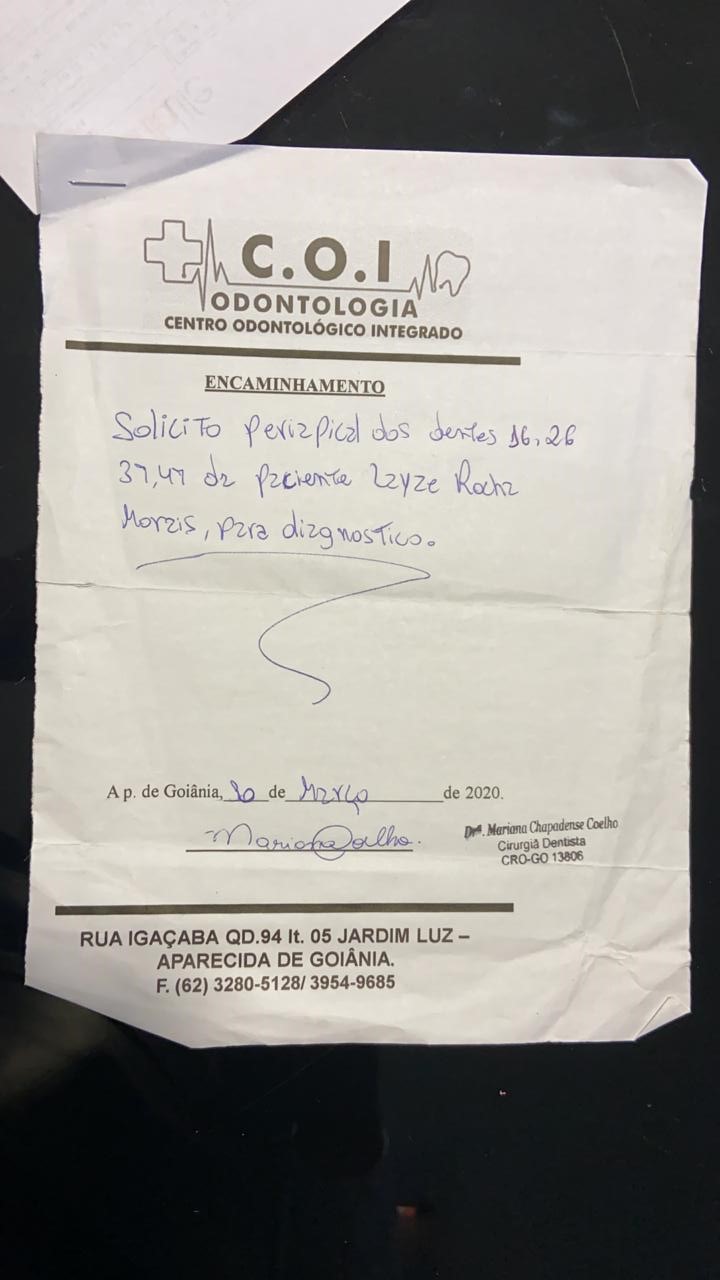 C.O.I
ODONTOLOGIA
CENTRO ODONTOLÓGICO INTEGRADO
ENCAMINHAMENTO
Solicito periapical dos dentes 16, 26
37, 47 da paciente Layze Rocha
Morais, para diagnostico.
Ap. de Goiânia, 10 de Março de 2020.
Mariana Coelho.
Drª. Mariana Chapadense Coelho
Cirurgiã Dentista
CRO-GO 13806
RUA IGAÇABA QD.94 lt. 05 JARDIM LUZ –
APARECIDA DE GOIÂNIA.
F. (62) 3280-5128/ 3954-9685